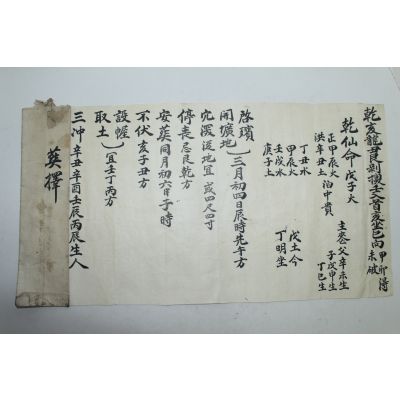 乾亥龍艮剝換壬入首亥坐巳向 甲卯得
未破
乾仙命 戊子火
主喪 父辛未生
子戊申生
丁巳生
正甲辰火 泊中貫
洪年丑土
丁丑水
甲辰火 戊土今
壬戌水 丁明坐
庚子土
啓殯
開壙地 三月初四日辰時先午方
穴深淺地宜 或四尺四寸
停喪忌艮乾方
安葬同月初六日子時
不伏亥子丑方
設幄
取土 宜壬丁丙方
三冲辛丑辛酉壬辰丙辰生人
葬擇